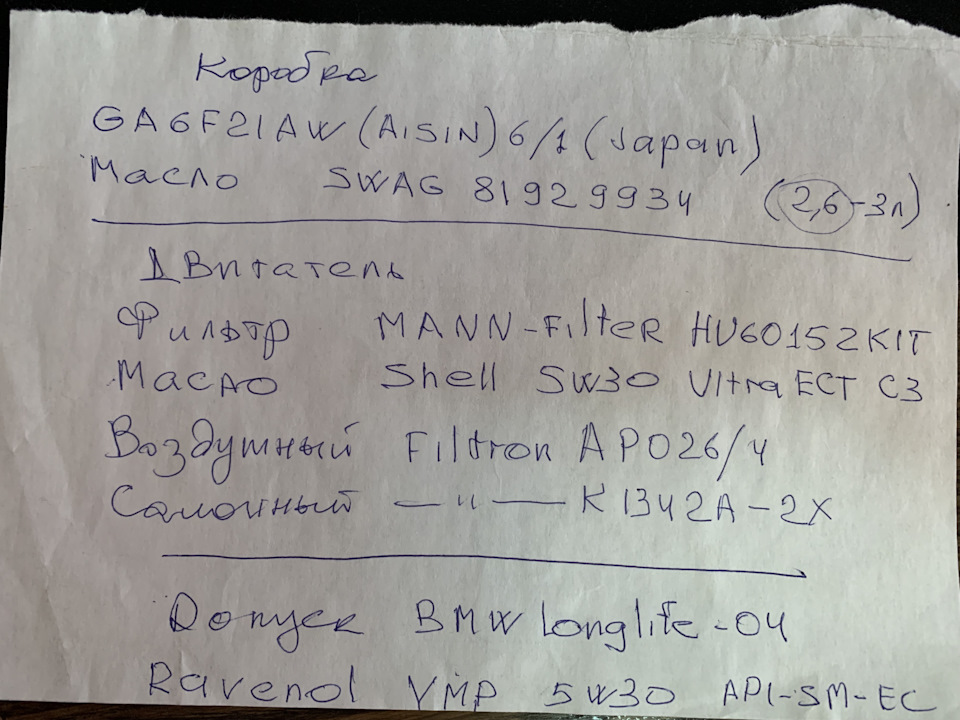 Коробка
GA6F21AW (AISIN) 6/1 (Japan)
Масло SWAG 81929934 (2,6-3л)
Двигатель
Фильтр MANN-FilteR HU6015ZKIT
Масло Shell 5W30 Ultra ECT C3
Воздушный Filtron AP026/4
Салонный —"— K1342A-2X
Допуск BMW Longlife-04
Ravenol VMP 5W30 API-SM-EC